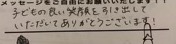 メッセージをご自由にお願いいたします！！
子どもの良い笑顔を引き出して
いただいてありがとうございます！